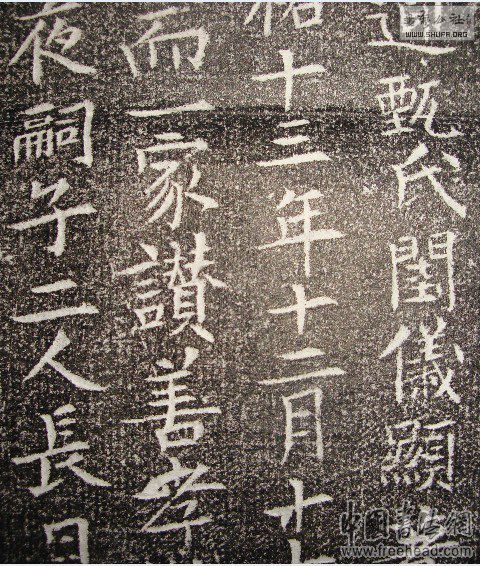 甄氏閨儀顯
祐十三年十二月十
而一家讚善孝
夜嗣子二人長曰
WWW.SHUFA.ORG
中國書法網
www.freehead.com